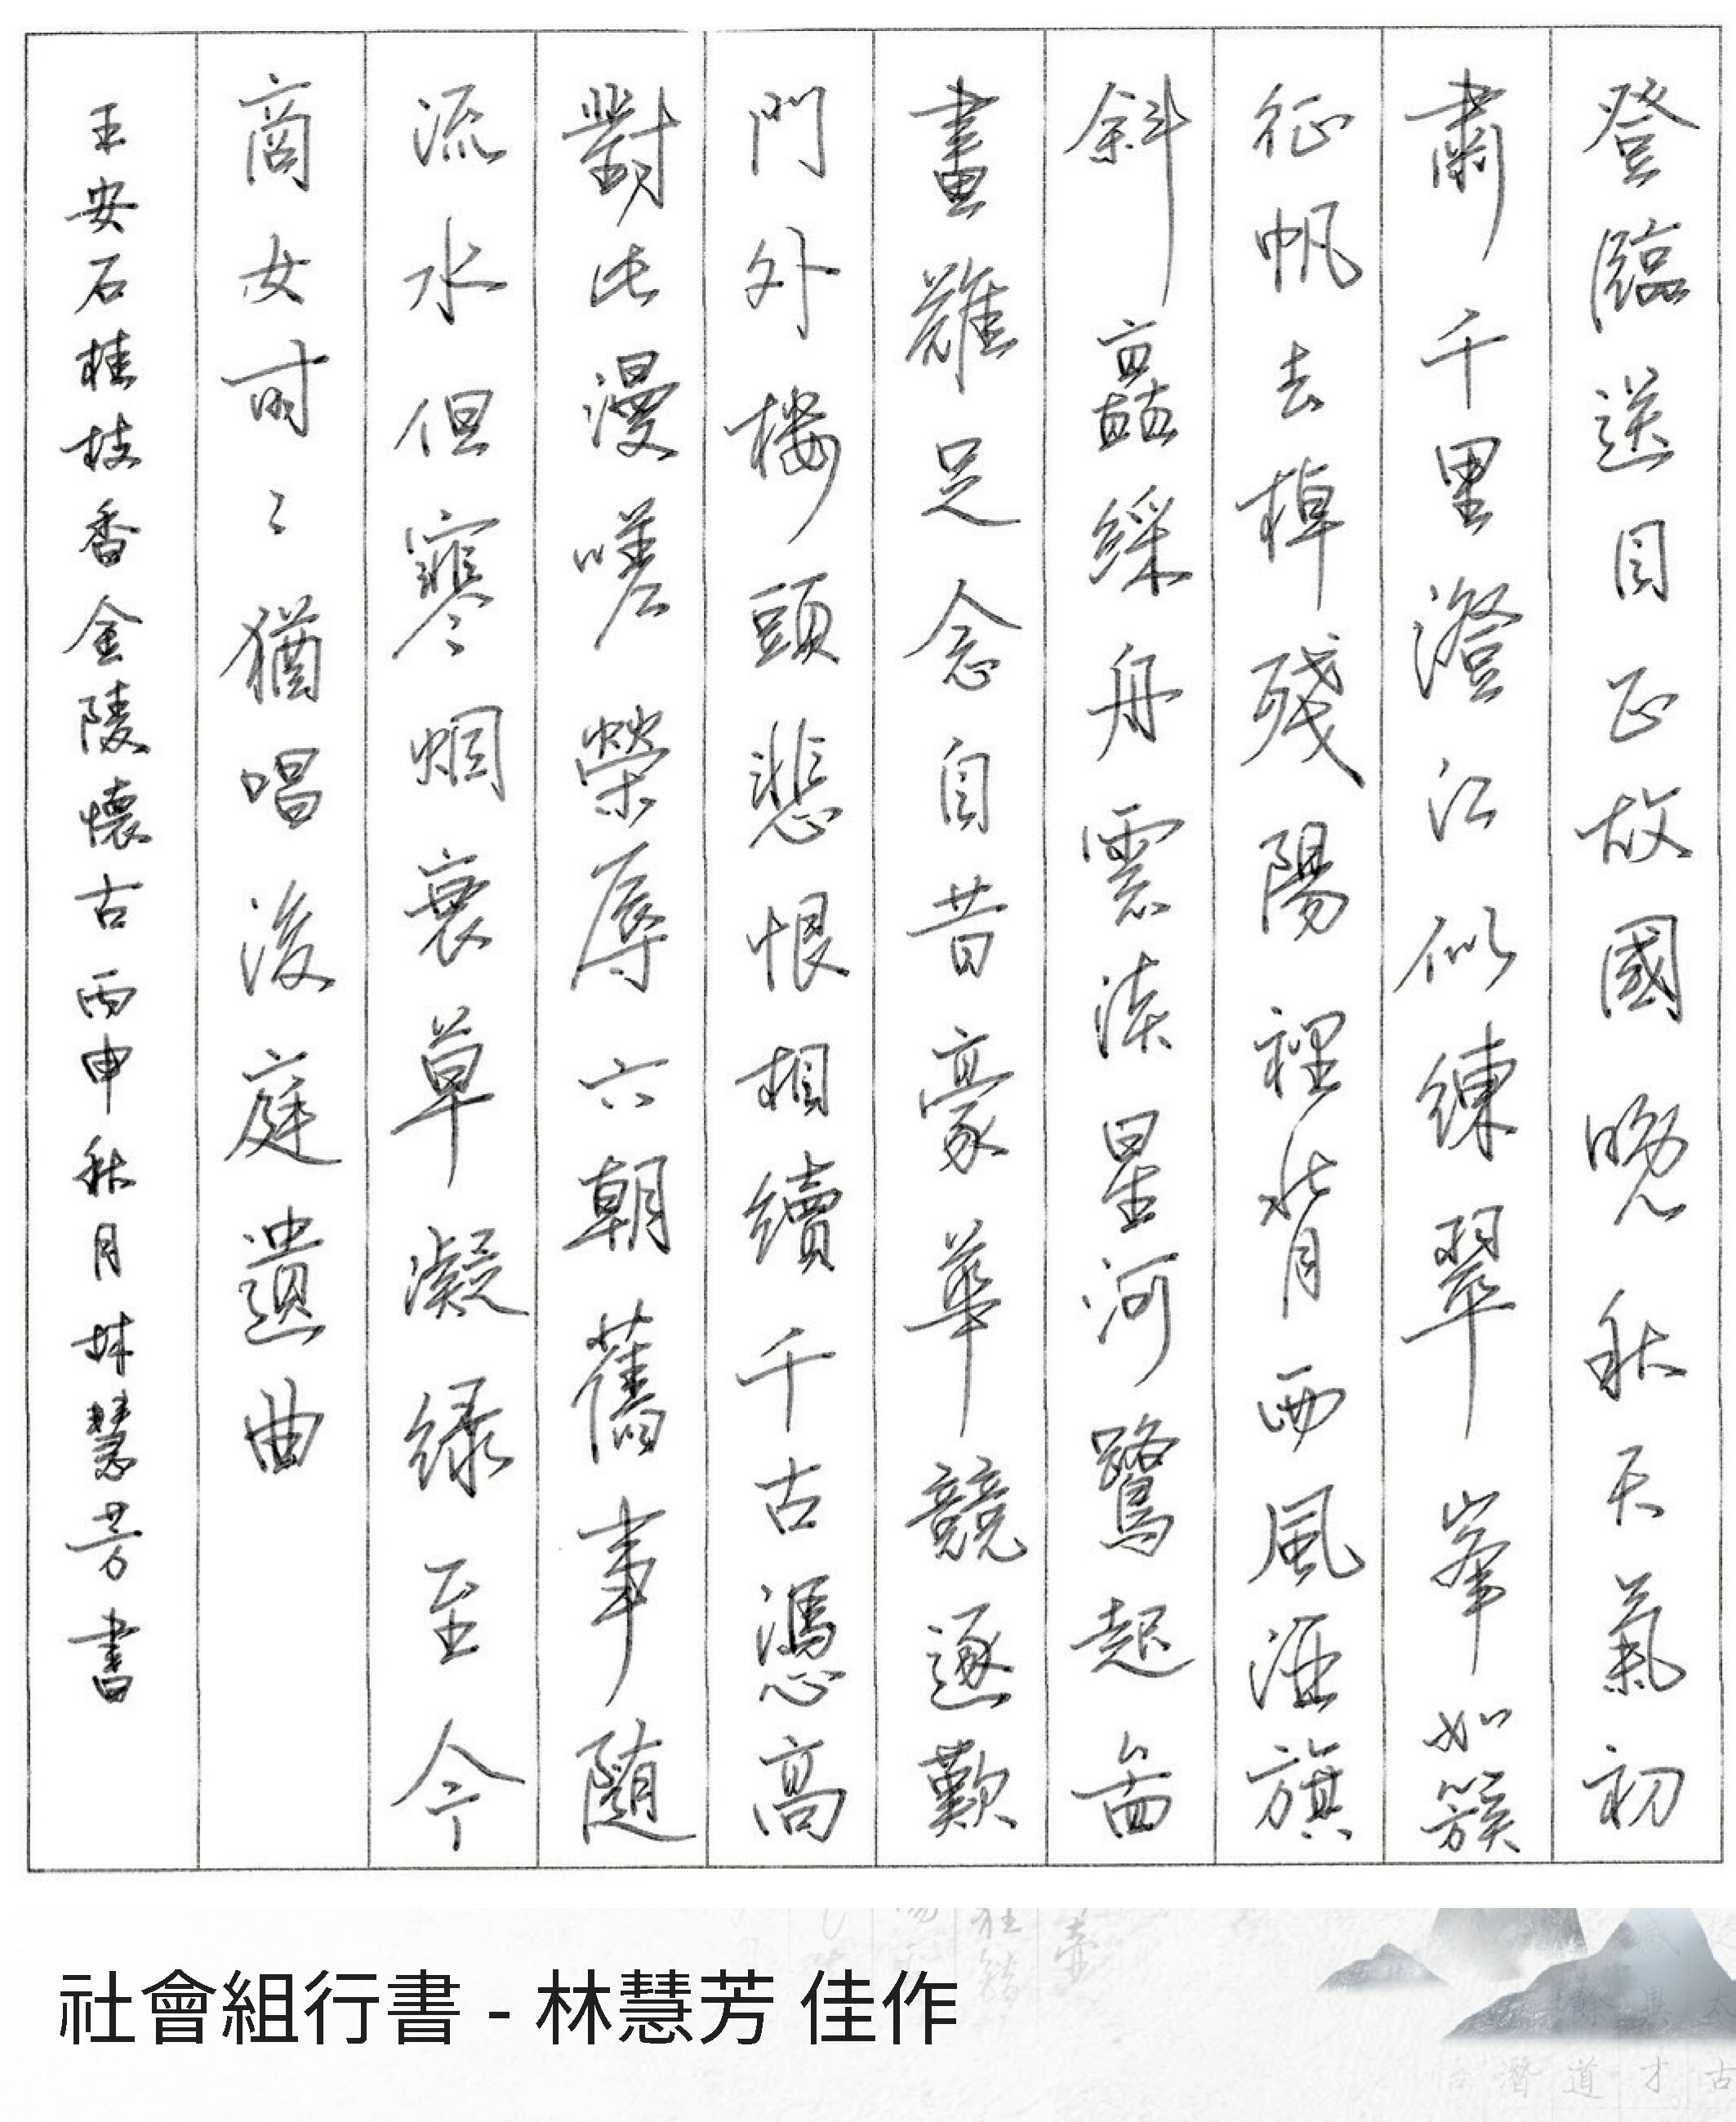 登臨送目正故國晚秋天氣初
肅千里澄江似練翠峯如簇
征帆去棹殘陽裡背西風酒旗
斜矗綵舟雲淡星河鷺起畵
畫難足念自昔豪華競逐歎
門外樓頭悲恨相續千古憑高
對此漫嗟榮辱六朝舊事隨
流水但寒烟衰草凝綠至今
商女時〻猶唱後庭遺曲
王安石桂枝香金陵懷古丙申秋月林慧芳書
社會組行書 - 林慧芳 佳作